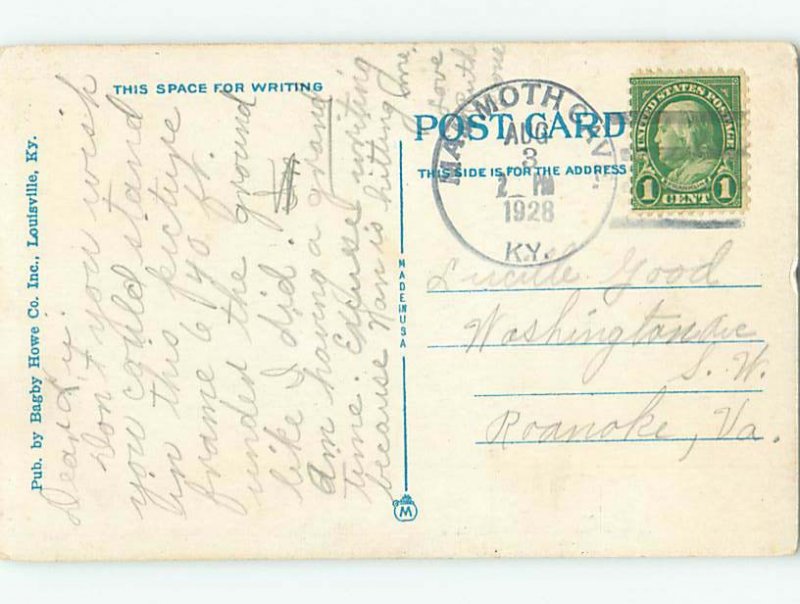 THIS SPACE FOR WRITING
Pub. by Bagby Howe Co. Inc., Louisville, Ky.
Dear Ly:
Don't you wish
you could stand
in this picture
frame 6 yo ft.
under the ground
like I did. I
am having a grand
time. Excuse writing
because Nan is hitting me.
Love
Ruth
POST CARD
THIS SIDE IS FOR THE ADDRESS
MAMMOTH CAVE
AUG
3
2 PM
1928
KY.
UNITED STATES POSTAGE
FRANKLIN
1 CENT 1
MADE IN USA
M
Lucille Good
Washington Ave
S. W.
Roanoke, Va.